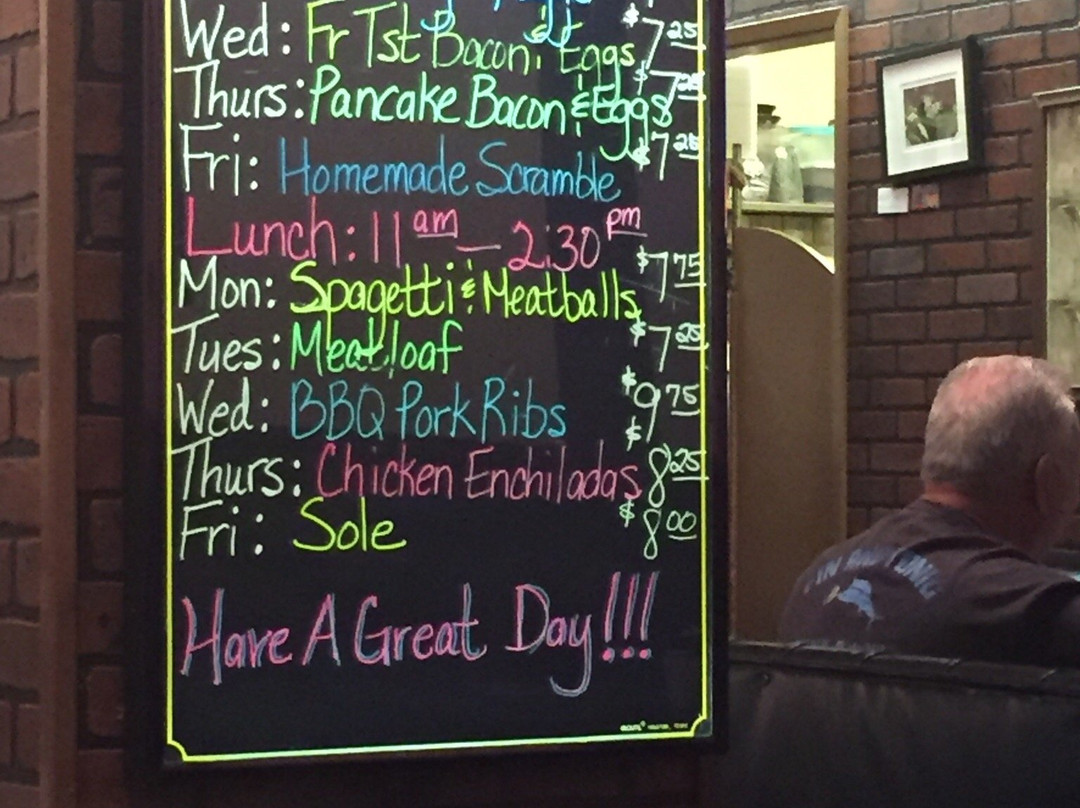 Wed: Fr Tst Bacon & Eggs $7 25
Thurs: Pancake Bacon & Eggs $7 25
Fri: Homemade Scramble $7 25
Lunch: 11 am — 2:30 pm
Mon: Spagetti & Meatballs $7 75
Tues: Meatloaf $7 25
Wed: BBQ Pork Ribs $9 75
Thurs: Chicken Enchiladas $8 25
Fri: Sole $8 00
Have A Great Day!!!